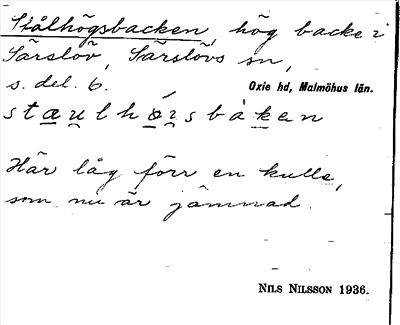 Stålhögsbacken, hög backe i
Särslöv, Särslövs sn,
s. del. 6. Oxie hd, Malmöhus län.
Här låg förr en kulle,
som nu är jämnad.
NILS NILSSON 1936.